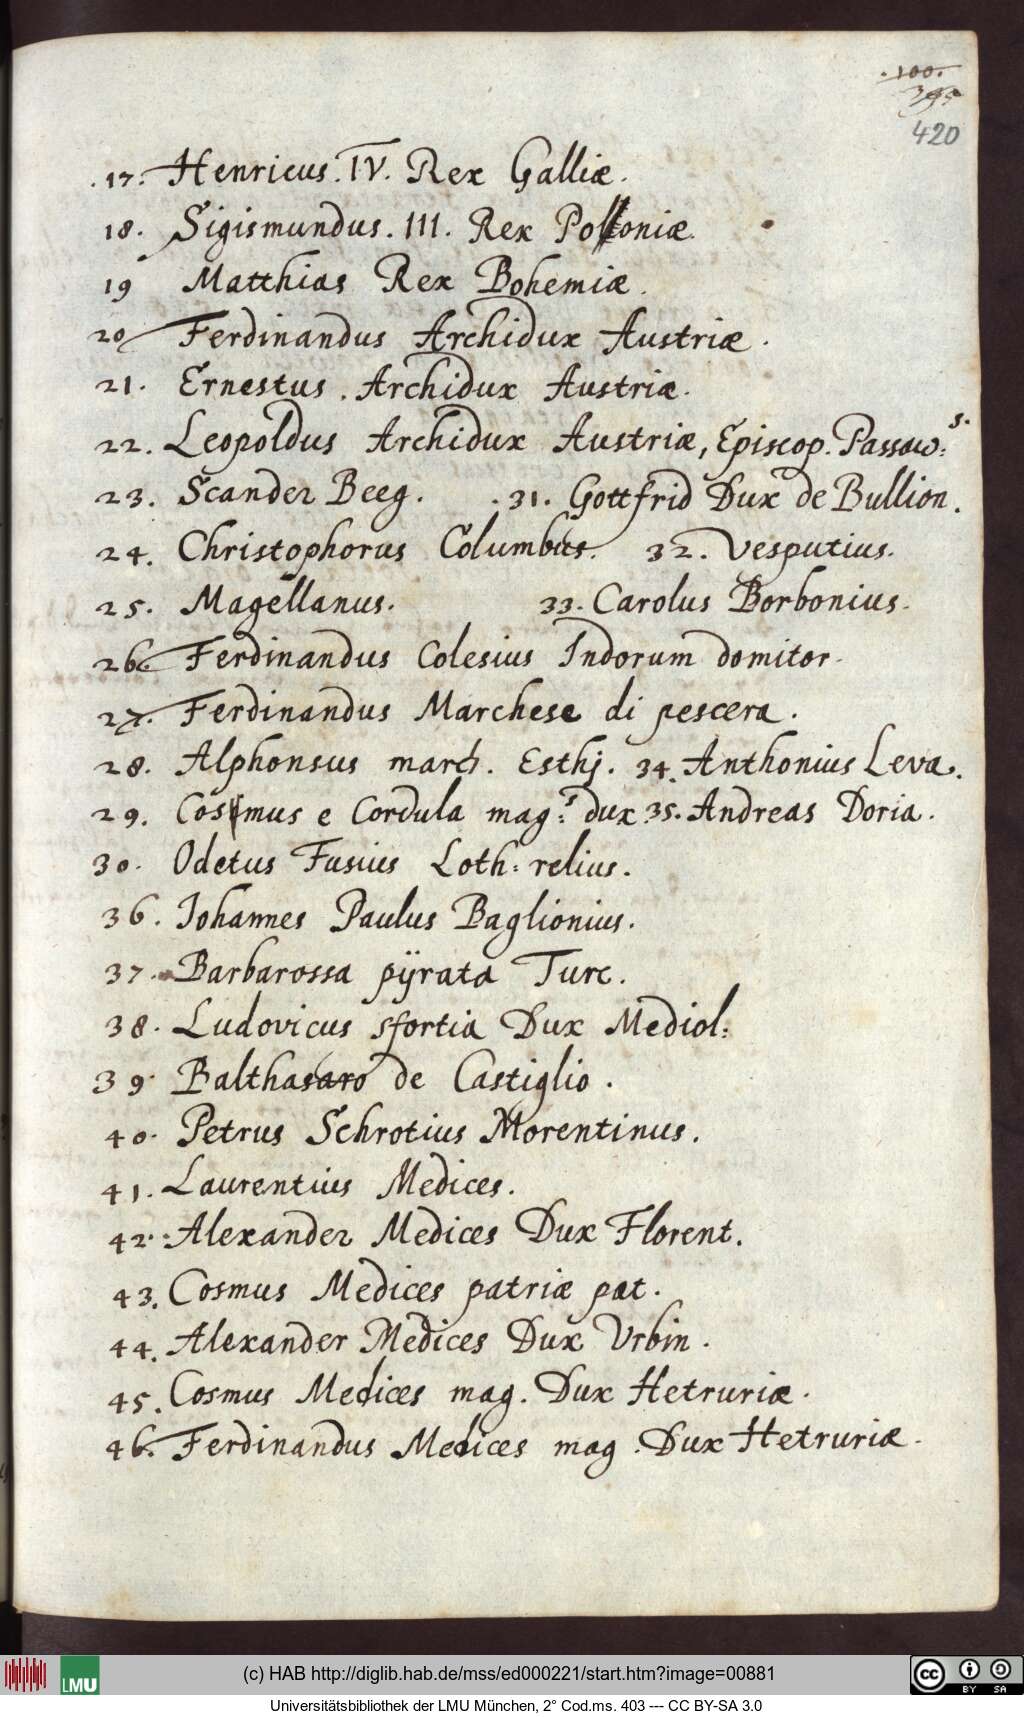 .100.
395
420
.17. Henricus. IV. Rex Galliæ.
18. Sigismundus. III. Rex Poloniæ.
19 Matthias Rex Bohemiæ.
20 Ferdinandus Archidux Austriæ.
21. Ernestus. Archidux Austriæ.
22. Leopoldus Archidux Austriæ, Episcop. Passaw: s.
23. Scander Beeg. .31. Gottfrid Dux de Bullion.
24. Christophorus Columbus. 32. Vesputius.
25. Magellanus. 33. Carolus Borbonius.
26. Ferdinandus Colesius Indorum domitor.
27. Ferdinandus Marchese di pescera.
28. Alphonsus march. Esthj. 34. Anthonius Leva.
29. Cosmus e Cordula mag:s dux 35. Andreas Doria.
30. Odetus Fusius Loth: relius.
36. Iohannes Paulus Baglionius.
37. Barbarossa pÿrata Turc.
38. Ludovicus sfortia Dux Mediol:
39. Balthasaro de Castiglio.
40. Petrus Schrotius Morentinus.
41. Laurentius Medices.
42. Alexander Medices Dux Florent.
43. Cosmus Medices patriæ pat.
44. Alexander Medices Dux Vrbin.
45. Cosmus Medices mag. Dux Hetruriæ.
46. Ferdinandus Medices mag. Dux Hetruriæ.
LMU
(c) HAB http://diglib.hab.de/mss/ed000221/start.htm?image=00881
cc BY SA
Universitätsbibliothek der LMU München, 2° Cod.ms. 403 --- CC BY-SA 3.0